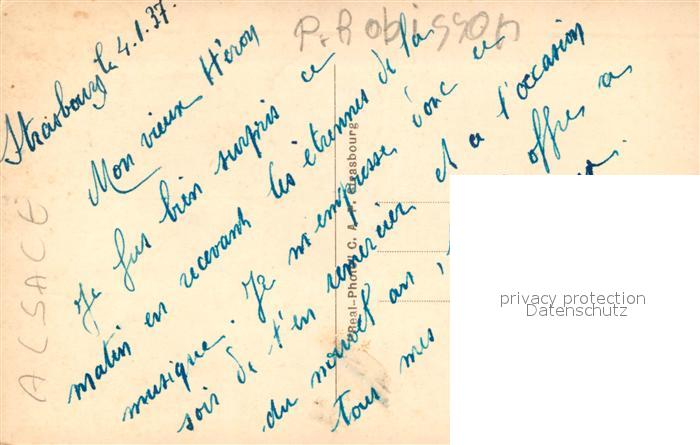 P. Robisson
Strasbourg le 4.1.37.
Mon vieux Héron
Je fus bien surpris ce
matin en recevant les étrennes de la
musique. Je m'empresse donc ce
soir de t'en remercier et à l'occasion
du nouvel an, offre, a
tous mes
ALSACE
Real-Photo C. A. P. Strasbourg
privacy protection
Datenschutz